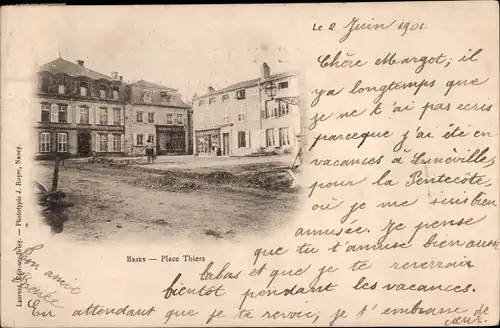 Le 2 Juin 1901.
Chère Margot; il
y a longtemps que
je ne t'ai pas écris
parceque j'ai été en
vacances à Lunéville
pour la Pentecôte,
où je me suis bien
amusée. Je pense
que tu t'amuse bien aussi
labas et que je te reverrair
bientôt pendant les vacances.
En attendant que je te revoir, je t'embrasse de
cœur.
Ton amie
BRIEY — Place Thiers
Phototypie J. Royer, Nancy.